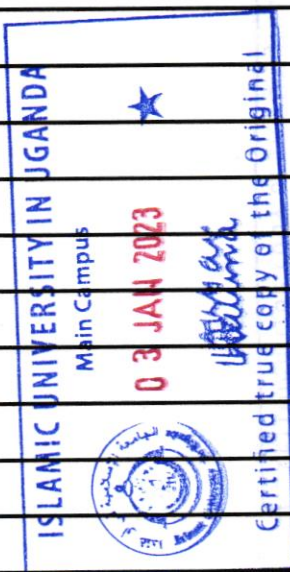 ISLAMIC UNIVERSITY IN UGANDA
Main Campus
03 JAN 2023
Certified true copy of the Original